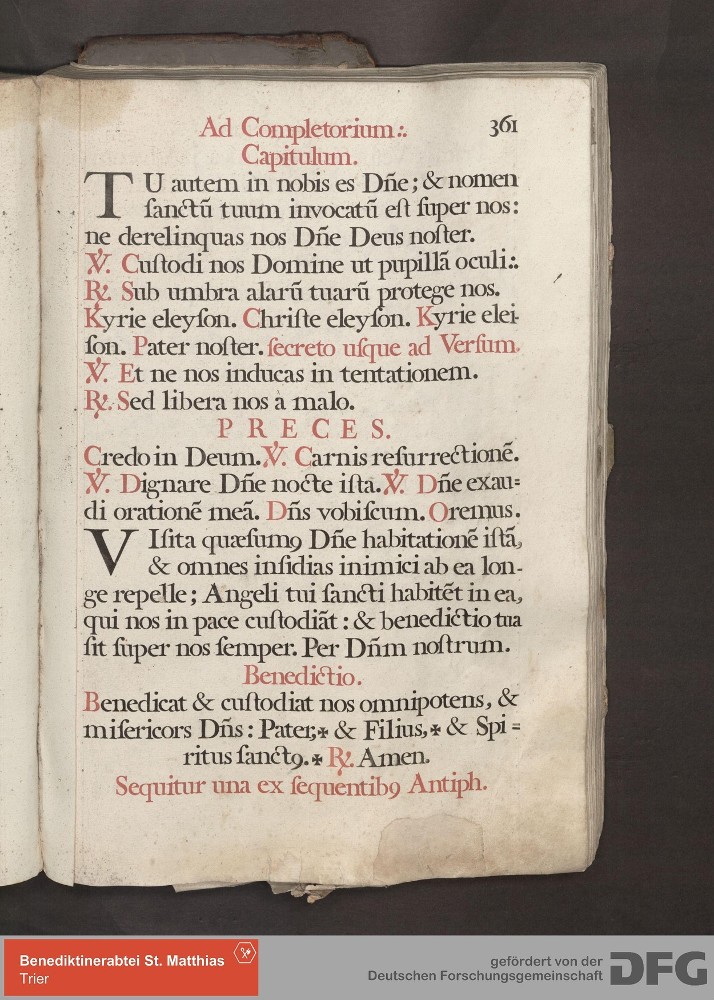 Ad Completorium:. 361
Capitulum.
TU autem in nobis es Dñe; & nomen
ſanctū tuum invocatū eſt ſuper nos:
ne derelinquas nos Dñe Deus noſter.
℣. Cuſtodi nos Domine ut pupillã oculi:.
℟. Sub umbra alarū tuarū protege nos.
Kyrie eleyſon. Chriſte eleyſon. Kyrie elei-
ſon. Pater noſter. ſecreto uſque ad Verſum.
℣. Et ne nos inducas in tentationem.
℟. Sed libera nos à malo.
PRECES.
Credo in Deum. ℣. Carnis reſurrectionē.
℣. Dignare Dñe nocte iſta. ℣. Dñe exau=
di orationē meã. Dñs vobiſcum. Oremus.
VIſita quæſumꝯ Dñe habitationē iſtã,
& omnes inſidias inimici ab ea lon-
ge repelle; Angeli tui ſancti habitēt in ea,
qui nos in pace cuſtodiãt: & benedictio tua
ſit ſuper nos ſemper. Per Dñm noſtrum.
Benedictio.
Benedicat & cuſtodiat nos omnipotens, &
miſericors Dñs: Pater,✠ & Filius,✠ & Spi=
ritus ſanctꝯ.✠ ℟. Amen.
Sequitur una ex ſequentibꝯ Antiph.
Benediktinerabtei St. Matthias
Trier
gefördert von der
Deutschen Forschungsgemeinschaft DFG